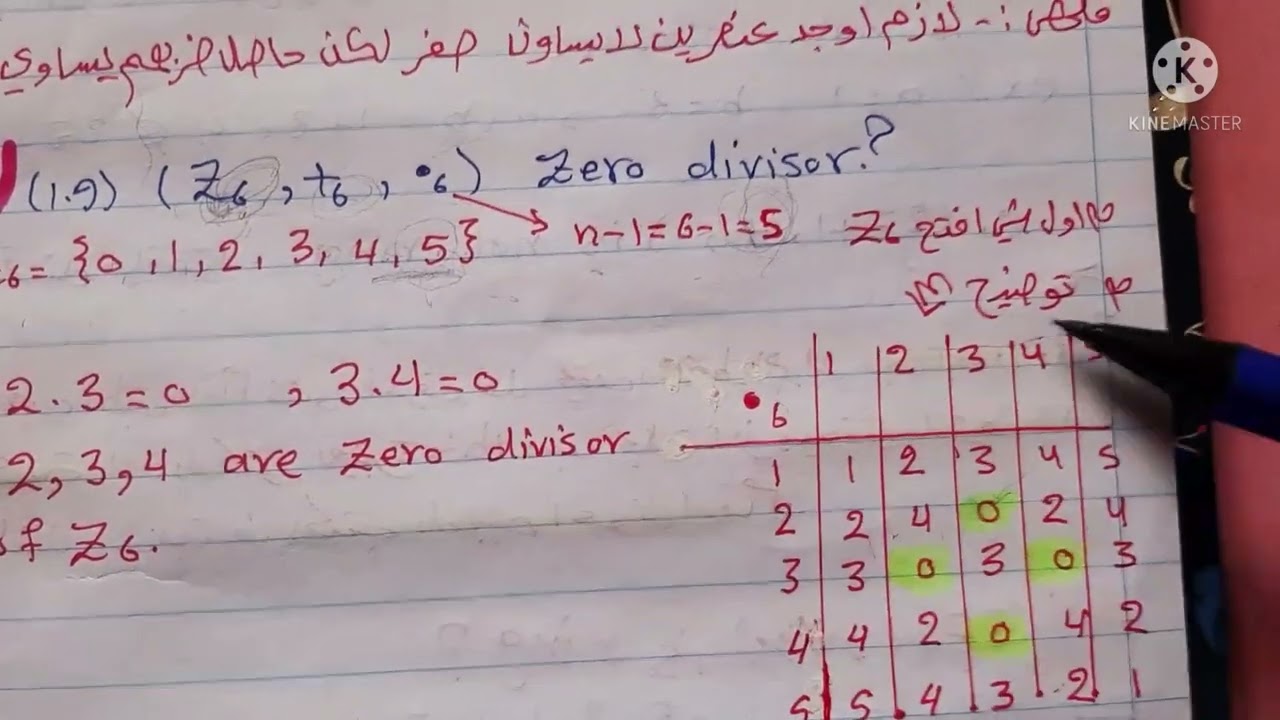 ملاحظة :- لازم اوجد عنصرين لا يساون صفر لكن حاصل ضربهم يساوي
KINEMASTER
(1.9) (Z6, +6, •6) Zero divisor?
6 = {0, 1, 2, 3, 4, 5} n-1=6-1=5 اول شي افتح Z6
توضيح
2.3=0 , 3.4=0
2, 3, 4 are Zero divisor
of Z6.
•6 1 2 3 4
1 1 2 3 4 5
2 2 4 0 2 4
3 3 0 3 0 3
4 4 2 0 4 2
5 5 4 3 2 1